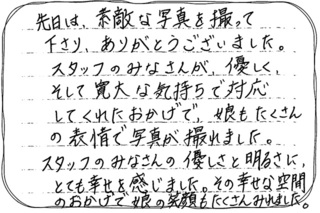 先日は、素敵な写真を撮って
下さり、ありがとうございました。
スタッフのみなさんが、優しく、
そして寛大な気持ちで対応
してくれたおかげで、娘もたくさん
の表情で写真が撮れました。
スタッフのみなさんの優しさと明るさに、
とても幸せを感じました。その幸せな空間
のおかげで娘の笑顔もたくさんみれました。